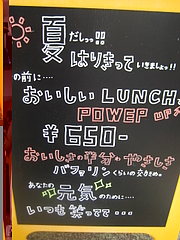 夏だしっ!!
はりきって いきましょっ!!
の前に‥‥
おいしい LUNCHで
POWER UP
¥650-
おいしさの半分は やさしさ
バファリン くらいの交きめ。
あなたの 元気 のために‥‥
いつも笑ってて‥‥